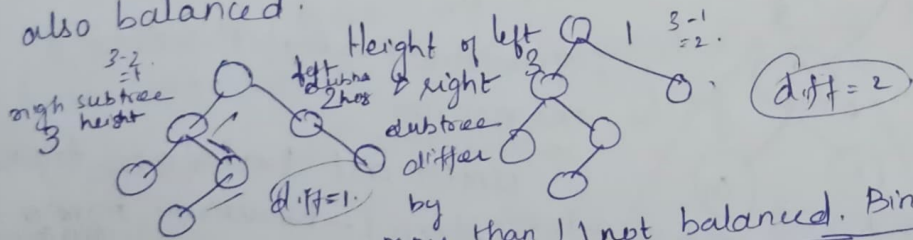 also balanced.
3-2
=1
righ subtree
3 height
diff=1.
Height of left
& right
subtree
differ
by
2
3
1
3-1
=2.
diff=2
than 1 not balanced. Bin